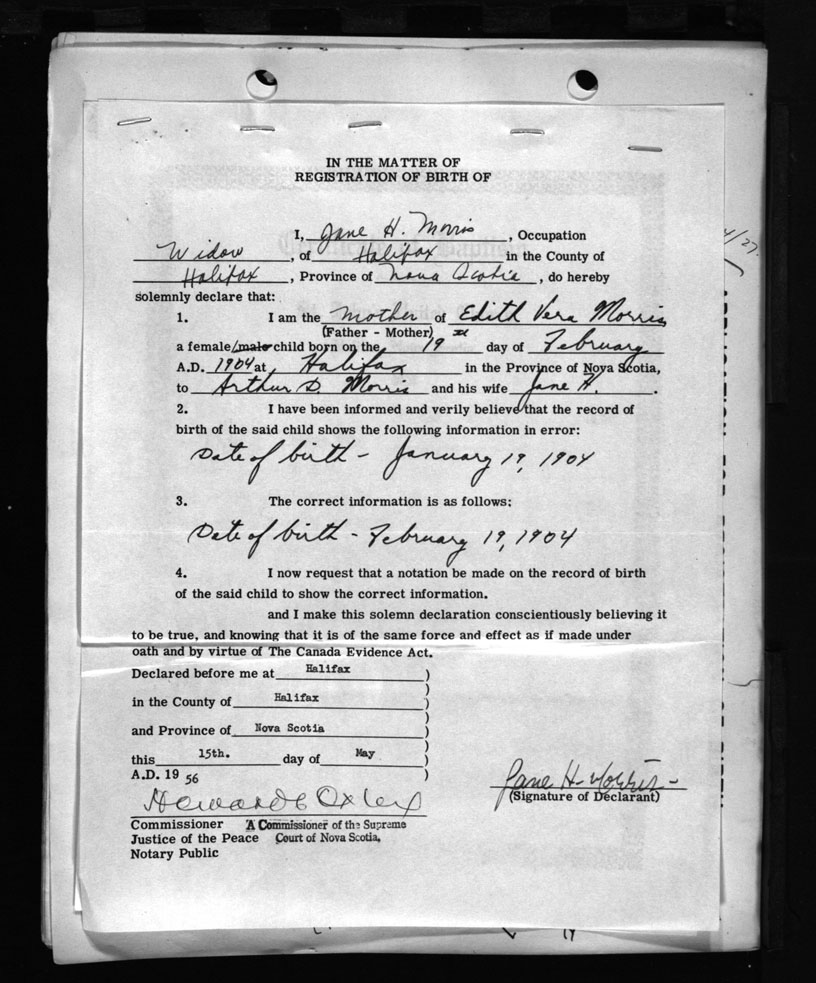 IN THE MATTER OF
REGISTRATION OF BIRTH OF
I, Jane H. Morris, Occupation
Widow, of Halifax in the County of
Halifax, Province of Nova Scotia, do hereby
solemnly declare that:
1. I am the mother of Edith Vera Morris
(Father - Mother)
a female/male child born on the 19 day of February
A.D. 1904 at Halifax in the Province of Nova Scotia,
to Arthur D. Morris and his wife Jane H.
2. I have been informed and verily believe that the record of
birth of the said child shows the following information in error:
Date of birth - January 19, 1904
3. The correct information is as follows:
Date of birth - February 19, 1904
4. I now request that a notation be made on the record of birth
of the said child to show the correct information.
and I make this solemn declaration conscientiously believing it
to be true, and knowing that it is of the same force and effect as if made under
oath and by virtue of The Canada Evidence Act.
Declared before me at Halifax )
in the County of Halifax )
and Province of Nova Scotia )
this 15th. day of May )
A.D. 19 56 )
Jane H. Morris
(Signature of Declarant)
Oxley
Commissioner A Commissioner of the Supreme
Justice of the Peace Court of Nova Scotia,
Notary Public